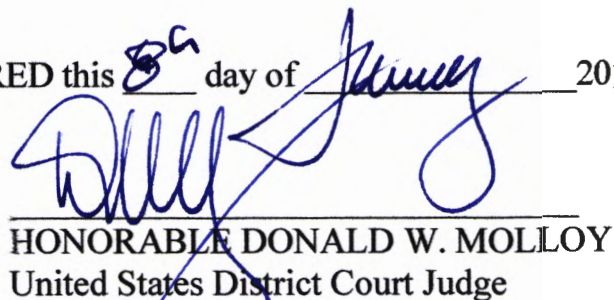 RED this 8th day of January 201
HONORABLE DONALD W. MOLLOY
United States District Court Judge